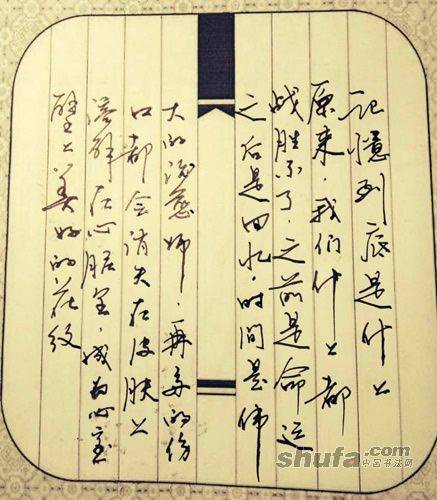 记憶到底是什么
原来，我们什么都
战胜不了，之前是命运
之后是回忆，时间是伟
大的治愈师，再多的伤
口都会消失在皮肤上
溶解在心脏里，成为心室
壁上美好的花纹
shufa.com
中国书法网